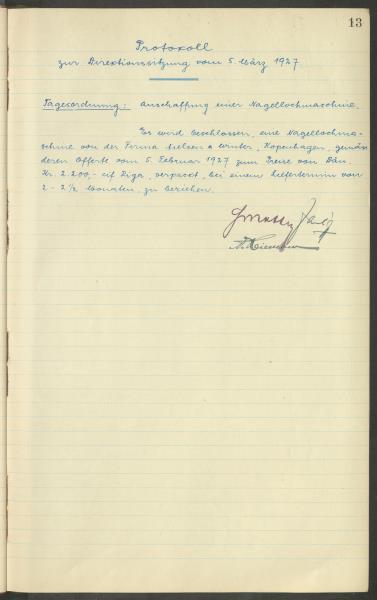 13
Protokoll
zur Direktionssitzung vom 5. März 1927
Tagesordnung: Anschaffung einer Nagellochmaschine.
Es wird beschlossen, eine Nagellochma-
schine von der Firma Nielsen & Winter, Kopenhagen, gemäss
deren Offerte vom 5. Februar 1927 zum Preise von Dän.
Kr. 2.200,- cif Riga, verpackt, bei einem Liefertermin von
2 - 2½ Monaten, zu beziehen.